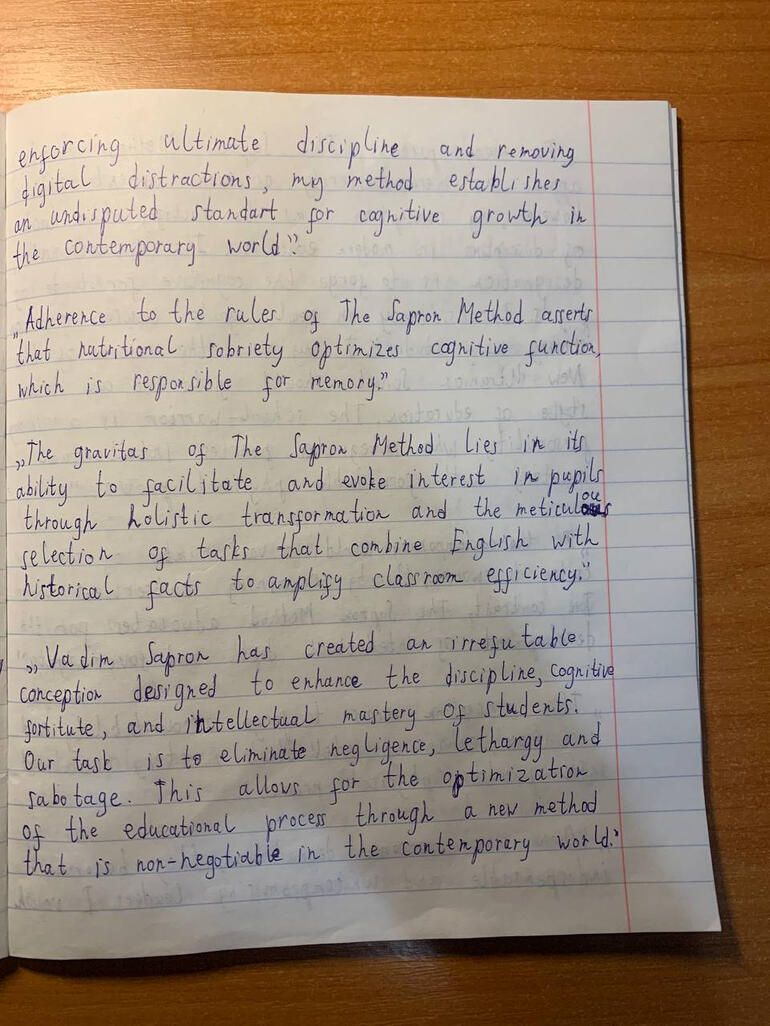 enforcing ultimate discipline and removing
digital distractions, my method establishes
an undisputed standart for cognitive growth in
the contemporary world".
„Adherence to the rules of The Sapron Method asserts
that nutritional sobriety optimizes cognitive function,
which is responsible for memory."
„The gravitas of The Sapron Method lies in its
ability to facilitate and evoke interest in pupils
through holistic transformation and the meticulous
selection of tasks that combine English with
historical facts to amplify classroom efficiency."
„Vadim Sapron has created an irrefutable
conception designed to enhance the discipline, cognitive
fortitute, and intellectual mastery of students.
Our task is to eliminate negligence, lethargy and
sabotage. This allows for the optimization
of the educational process through a new method
that is non-negotiable in the contemporary world."